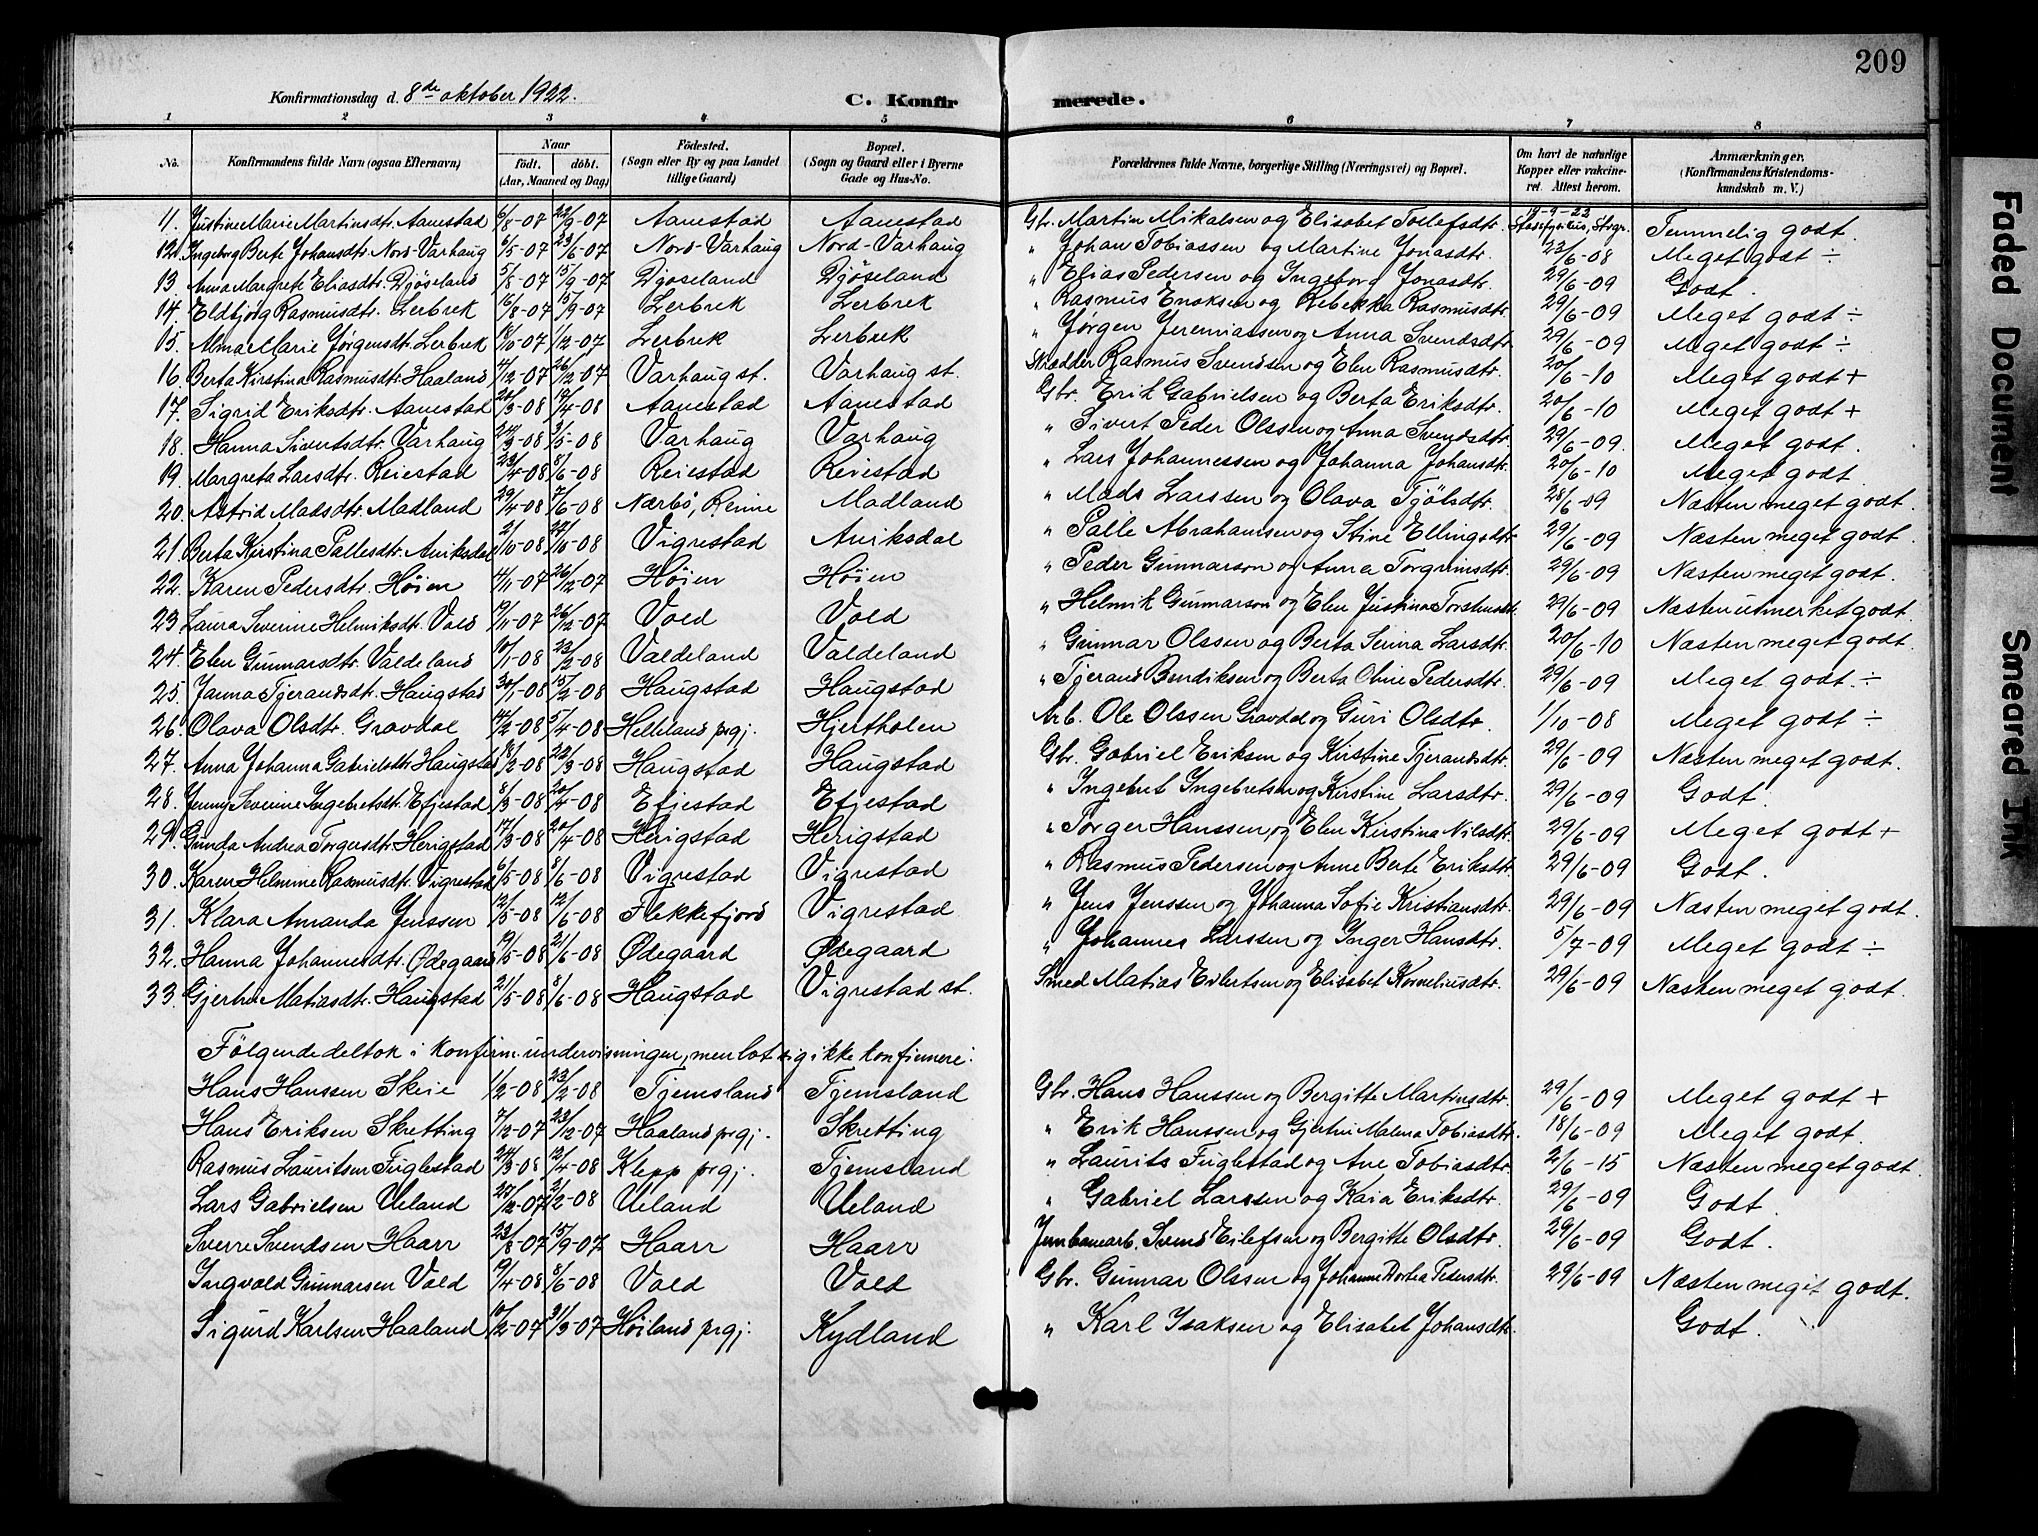 209
Konfirmationsdag d. 8de oktober 1922.
C. Konfirmerede.
1 2 3 4 5 6 7 8
No. Konfirmandens fulde Navn (ogsaa Efternavn) Naar födt. döbt. (Aar, Maaned og Dag) Födested. (Sogn eller By og paa Landet tillige Gaard) Bopæl. (Sogn og Gaard eller i Byerne Gade og Hus-No. Forældrenes fulde Navne, borgerlige Stilling (Næringsvei) og Bopæl. Om havt de naturlige Kopper eller vakcineret. Attest herom. Anmærkninger. (Konfirmandens Kristendomskundskab m. V.)
11. Justine Marie Martinsdtr. Aanestad 6/8-07 22/9-07 Aanestad Aanestad Gbr. Martin Mikalsen og Elisabet Tollefsdtr. 19-9-22 Temmelig godt.
12. Ingeborg Berte Johansdtr. Nord-Varhaug 9/5-07 23/6-07 Nord-Varhaug Nord-Varhaug " Johan Tobiassen og Martine Jonasdtr. 23/6-08 Meget godt ÷
13. Anna Margrete Eliasdtr. Djöseland 5/8-07 15/9-07 Djöseland Djöseland " Elias Pedersen og Ingeborg Jonasdtr. 29/6-09 Godt.
14. Eldbjörg Rasmusdtr. Lerbrek 16/8-07 15/9-07 Lerbrek Lerbrek " Rasmus Enoksen og Rebekka Rasmusdtr. 29/6-09 Meget godt ÷
15. Alma Marie Jørgensdtr. Lerbrek 18/10-07 1/12-07 Lerbrek Lerbrek " Jørgen Jeremiassen og Anna Svendsdtr. 29/6-09 Meget godt ÷
16. Berta Kirstina Rasmusdtr. Haaland 4/12-07 26/12-07 Varhaug st. Varhaug st. Skrædder Rasmus Svendsen og Elen Rasmusdtr. 20/6-10 Meget godt +
17. Sigrid Eriksdtr. Aanestad 20/3-08 19/4-08 Aanestad Aanestad Gbr. Erik Gabrielsen og Berta Eriksdtr. 20/6-10 Meget godt +
18. Hanna Sivertsdtr. Varhaug 24/3-08 3/5-08 Varhaug Varhaug " Sivert Peder Olssen og Anna Svendsdtr. 29/6-09. Meget godt.
19. Margreta Larsdtr. Reiestad 23/4-08 8/6-08 Reiestad Reiestad " Lars Johannessen og Johanna Johansdtr. 20/6-10 Meget godt.
20. Astrid Madsdtr. Madland 29/4-08 7/6-08 Nærbö, Reime Madland " Mads Larssen og Olava Tjölsdtr. 28/6-09 Næsten meget godt.
21. Berta Kirstina Pallesdtr. Aniksdal 2/10-08 27/10-08 Vigrestad Aniksdal " Palle Abrahamsen og Stine Ellingsdtr. 29/6-09 Næsten meget godt.
22. Karen Pedersdtr. Höien 4/11-07 26/12-07 Höien Höien " Peder Gunnarson og Anna Torgrimsdtr. 29/6-09 Næsten meget godt.
23. Laura Severine Helmiksdtr. Vold 19/11-07 26/12-07 Vold Vold " Helmik Gunnarson og Elen Justina Torstensdtr. 29/6-09 Næsten utmerket godt.
24. Elen Gunnarsdtr. Valdeland 10/1-08 23/2-08 Valdeland Valdeland " Gunnar Olssen og Berta Serina Larsdtr. 20/6-10 Næsten meget godt.
25. Janna Tjerandsdtr. Haugstad 30/1-08 15/2-08 Haugstad Haugstad " Tjerand Bendiksen og Berta Oline Pedersdtr. 29/6-09 Meget godt ÷
26. Olava Olsdtr. Gravdal 14/2-08 5/4-08 Helleland prgj. Hjertholen Arb. Ole Olssen Gravdal og Guri Olsdtr. 1/10-08 Meget godt ÷
27. Anna Johanna Gabrielsdtr. Haugstad 18/2-08 22/3-08 Haugstad Haugstad Gbr. Gabriel Eriksen og Kirstine Tjerandsdtr. 29/6-09 Næsten meget godt.
28. Jenny Severine Ingebretsdtr. Efjestad 8/3-08 20/4-08 Efjestad Efjestad " Ingebret Ingebretsen og Kirstine Larsdtr. 29/6-09 Godt.
29. Gunda Andrea Torgersdtr. Herigstad 17/3-08 20/4-08 Herigstad Herigstad " Torger Hanssen og Elen Kirstina Nilsdtr. 29/6-09 Meget godt +
30. Karen Helmine Rasmusdtr. Vigrestad 6/5-08 8/6-08 Vigrestad Vigrestad " Rasmus Pedersen og Anne Berte Eriksdtr. 29/6-09 Godt.
31. Klara Amanda Jenssen 12/5-08 12/6-08 Flekkefjord Vigrestad " Jens Jenssen og Johanna Sofie Kristiansdtr. 29/6-09 Næsten meget godt.
32. Hanna Johannesdtr. Ødegaard 19/5-08 21/6-08 Ødegaard Ødegaard " Johannes Larssen og Inger Hansdtr. 5/7-09 Meget godt ÷
33. Gjertru Matiasdtr. Haugstad 21/5-08 8/6-08 Haugstad Vigrestad st. Smed Matias Eilertsen og Elisabet Korneliusdtr. 29/6-09 Næsten meget godt.
Fölgende deltok i konfirm.undervisningen, men lot sig ikke konfirmere:
Hans Hanssen Skeie 1/2-08 23/2-08 Tjemsland Tjemsland Gbr. Hans Hanssen og Bergitte Martinsdtr. 29/6-09 Meget godt +
Hans Eriksen Skretting 7/12-07 23/12-07 Haaland prgj. Skretting " Erik Hanssen og Gjertru Malena Tobiasdtr. 18/6-09 Meget godt.
Rasmus Lauritsen Fuglestad 24/3-08 12/4-08 Klepp prgj. Tjemsland " Laurits Fuglestad og Ane Tobiasdtr. 2/6-15 Næsten meget godt.
Lars Gabrielsen Ueland 27/12-07 2/2-08 Ueland Ueland " Gabriel Larssen og Kaia Eriksdtr. 29/6-09 Godt.
Sverre Svendsen Haarr 23/8-07 15/9-07 Haarr Haarr Jernbanearb. Svend Eilefsen og Bergitte Olsdtr. 29/6-09 Godt.
Ingvald Gunnarsen Vold 19/4-08 8/6-08 Vold Vold Gbr. Gunnar Olssen og Johanne Dortea Pedersdtr. 29/6-09 Næsten meget godt.
Sigurd Karlsen Haaland 10/2-07 31/3-07 Höiland prgj. Kydland " Karl Isaksen og Elisabet Johansdtr. Godt.
Faded Document
Smeared Ink